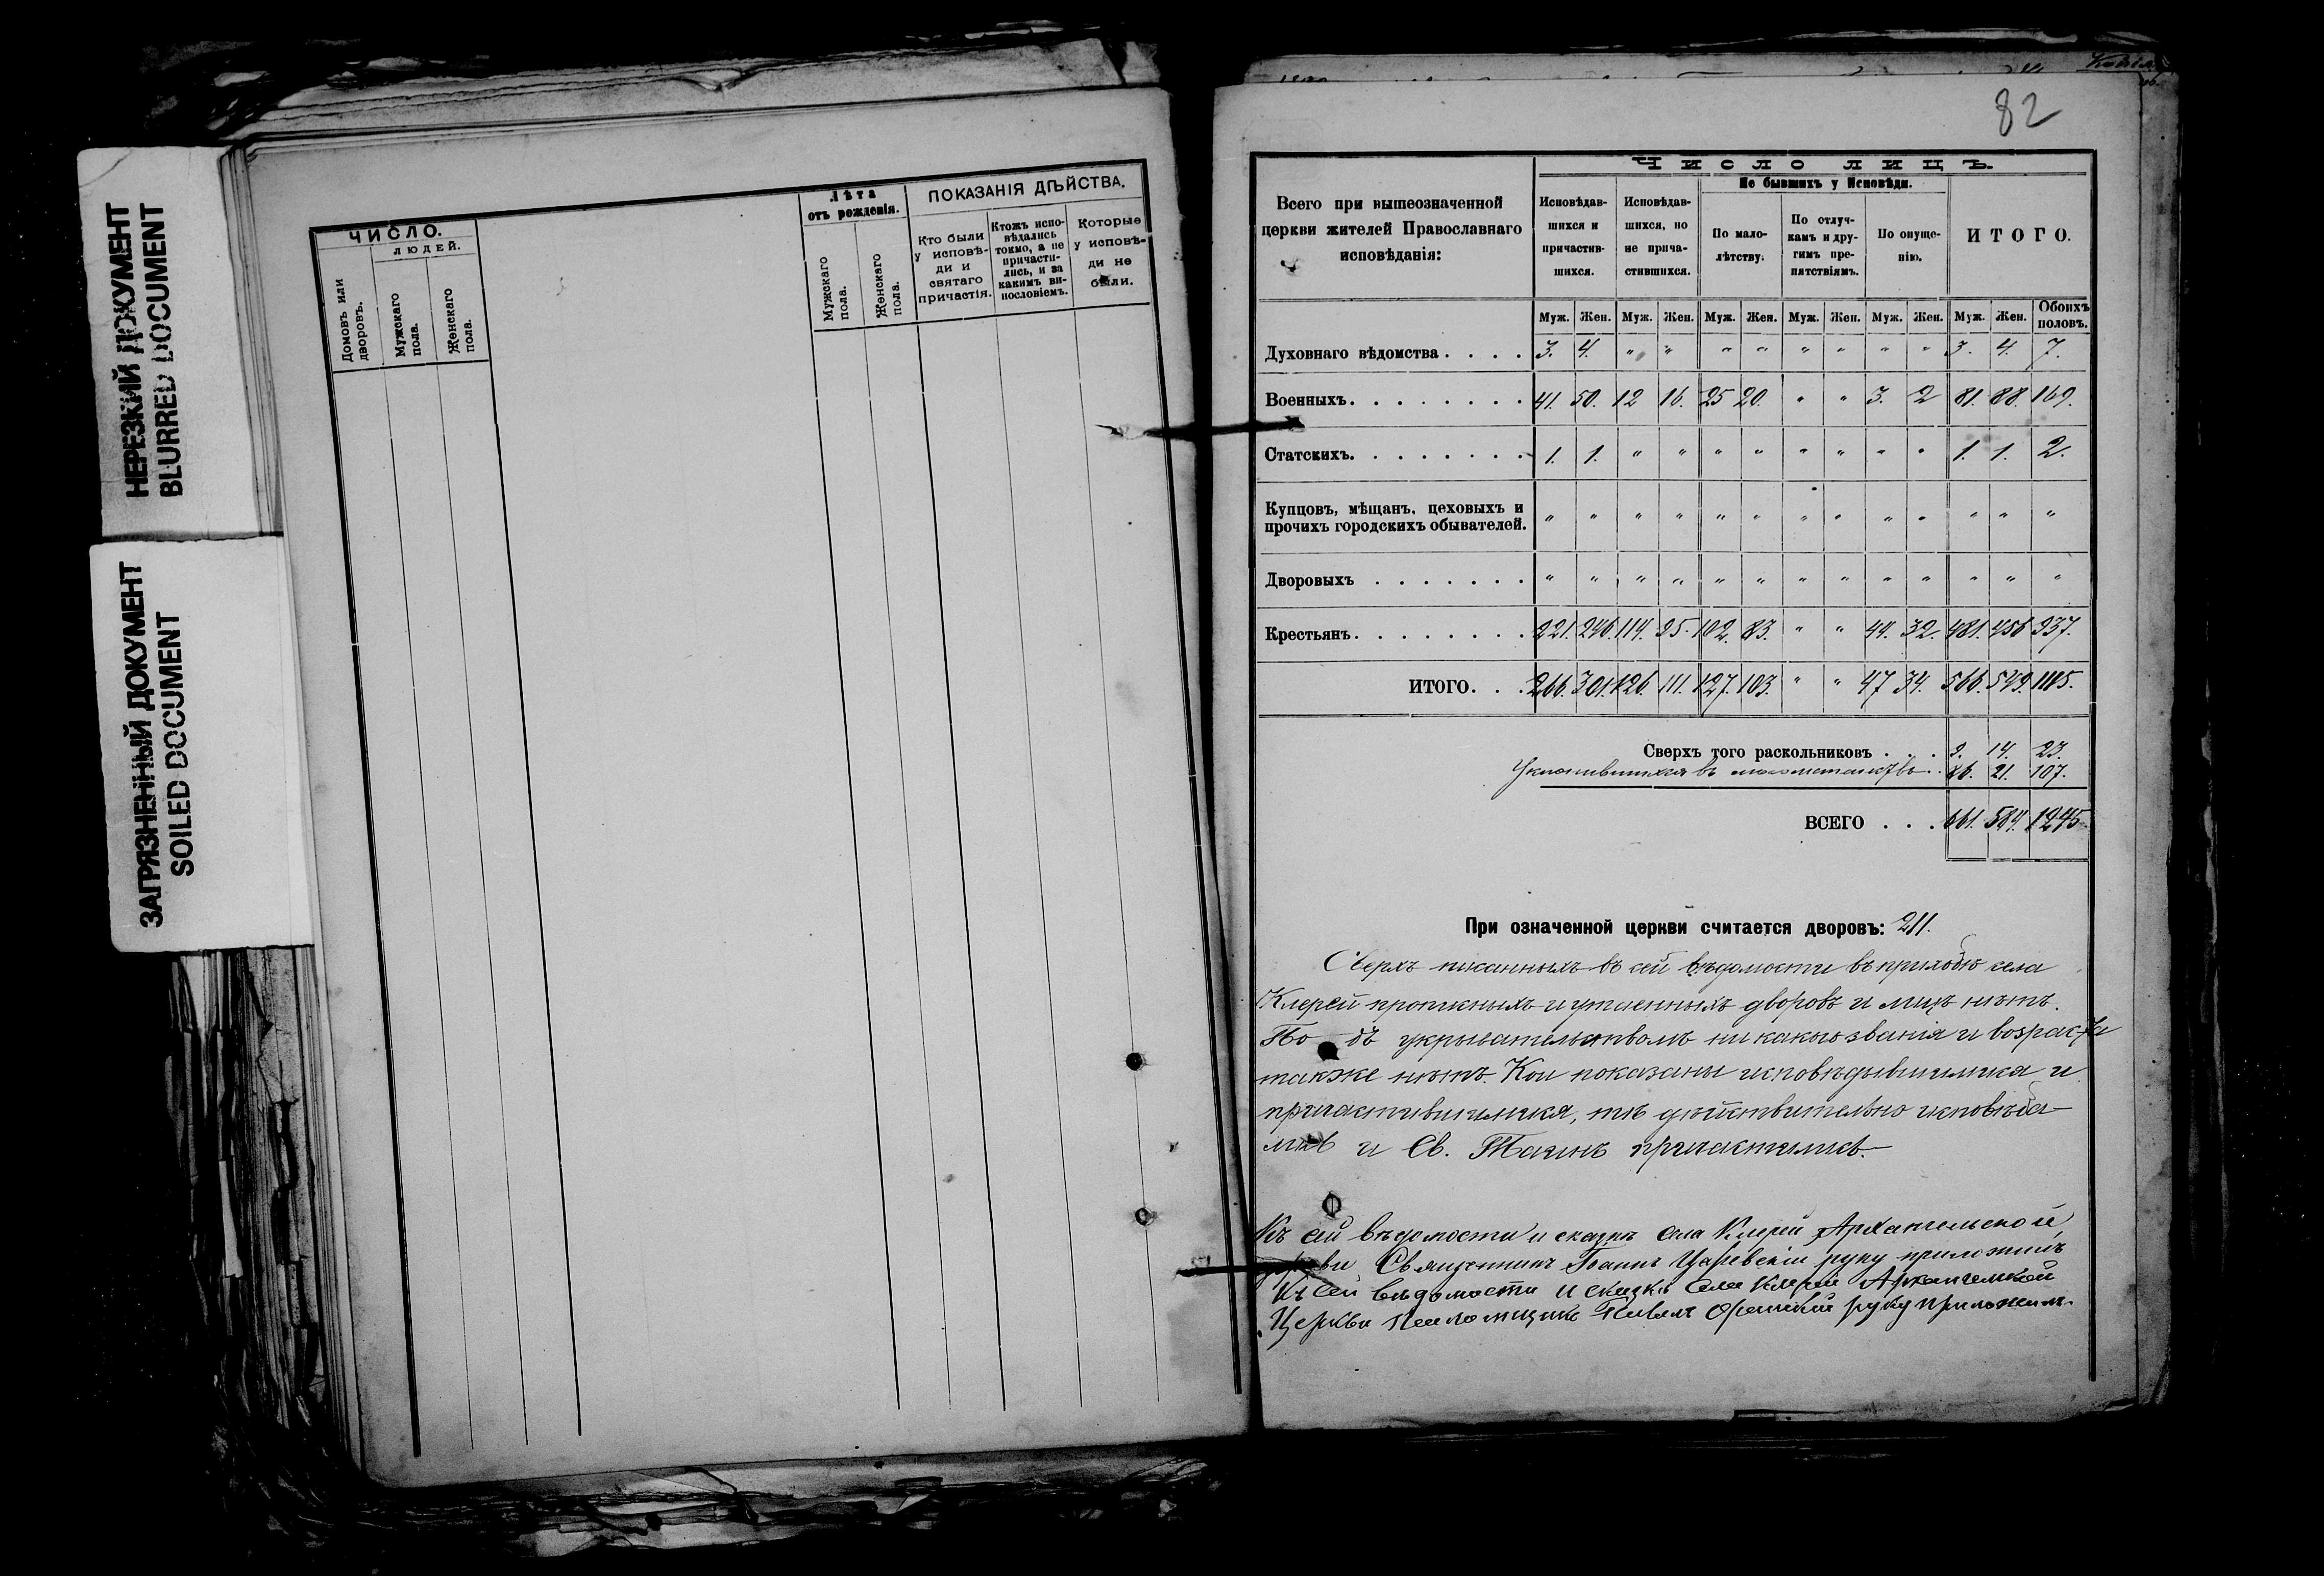 НЕРЕЗКИЙ ДОКУМЕНТ
BLURRED DOCUMENT
ЗАГРЯЗНЕННЫЙ ДОКУМЕНТ
SOILED DOCUMENT
ЧИСЛО.
ЛЮДЕЙ.
Домовъ или дворовъ.
Мужскаго пола.
Женскаго пола.
Лѣта
отъ рожденія.
Мужскаго пола.
Женскаго пола.
ПОКАЗАНІЯ ДѢЙСТВА.
Кто были
у исповѣ-
ди и
святаго
причастія.
Ктожъ испо-
вѣдались
токмо, а не
причасти-
лись, и за
какимъ ви-
нословіемъ.
Которые
у исповѣ-
ди не
были.
82
ЧИСЛО ЛИЦЪ.
Всего при вышеозначенной
церкви жителей Православнаго
исповѣданія:
Исповѣдав-
шихся и
причастив-
шихся.
Исповѣдав-
шихся, но
не прича-
стившихся.
Не бывшихъ у Исповѣди.
По мало-
лѣтству.
По отлуч-
камъ и дру-
гимъ пре-
пятствіямъ.
По опуще-
нію.
ИТОГО.
Муж. Жен. Муж. Жен. Муж. Жен. Муж. Жен. Муж. Жен. Муж. Жен. Обоихъ половъ.
Духовнаго вѣдомства . . . . 3. 4. " " " " " " " " 3. 4. 7.
Военныхъ. . . . . . . . 41. 50. 12 16. 25 20. " " 3. 2 81. 88. 169.
Статскихъ. . . . . . . . 1. 1. " " " " " " " " 1. 1. 2.
Купцовъ, мѣщанъ, цеховыхъ и
прочихъ городскихъ обывателей. " " " " " " " " " " " " "
Дворовыхъ . . . . . . . " " " " " " " " " " " " "
Крестьянъ. . . . . . . . 221. 246. 114. 95. 102. 83. " " 44. 32. 481. 456 937.
ИТОГО. . . 266. 301. 126. 111. 127. 103. " " 47 34. 566. 549. 1115.
Сверхъ того раскольниковъ . . . 9. 14. 23.
Уклонившихся въ магометанство . . 86. 21. 107.
ВСЕГО . . . 661. 584. 1245.
При означенной церкви считается дворовъ: 211.
Сверхъ писанныхъ въ сей вѣдомости въ приходѣ села
Клерей прописныхъ и утаенныхъ дворовъ и лицъ нѣтъ.
Подъ укрывательствомъ ни какого званія и возраста
также нѣтъ. Кои показаны исповѣдывшимися и
причастившимися, тѣ дѣйствительно исповѣда-
лись и Св. Таинъ причастились.
Къ сей вѣдомости и сказкѣ села Клерей Архангельской
церкви Священникъ Іоаннъ Царевскій руку приложилъ
Къ сей вѣдомости и сказкѣ села Клерей Архангельской
Церкви Псаломщикъ Павелъ руку приложилъ.